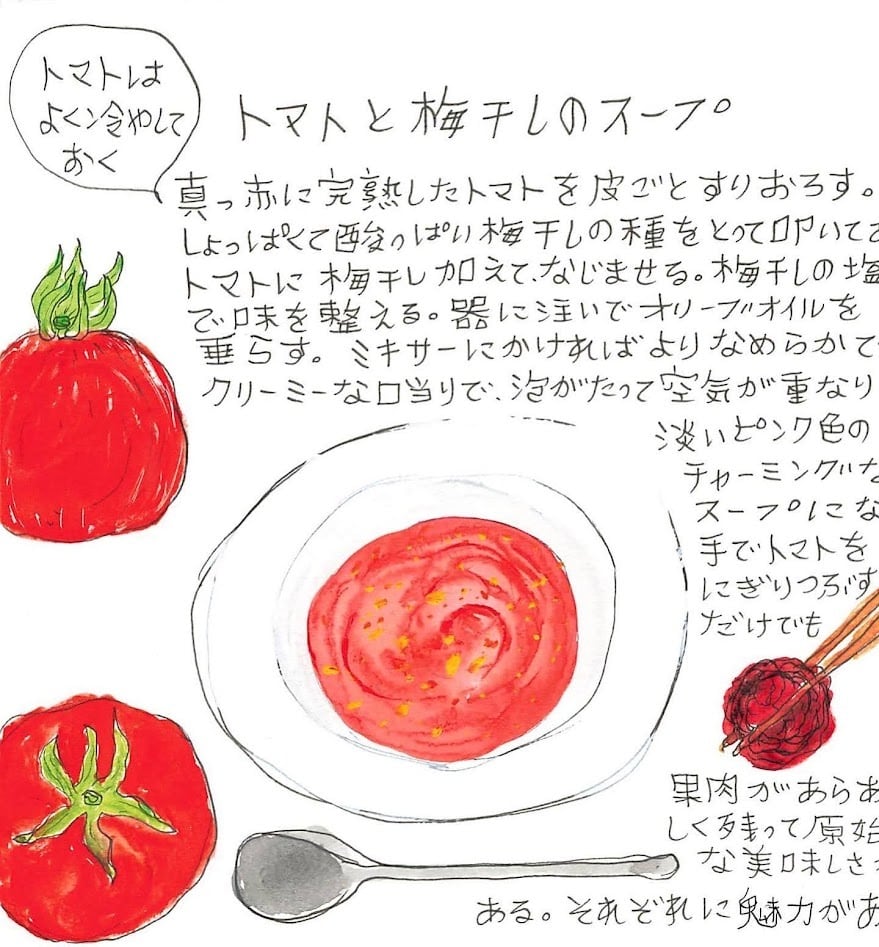 トマトは
よく冷やして
おく
トマトと梅干しのスープ
真っ赤に完熟したトマトを皮ごとすりおろす。
しょっぱくて酸っぱい梅干しの種をとって叩いて
トマトに梅干し加えて、なじませる。梅干しの塩
で味を整える。器に注いでオリーブオイルを
垂らす。ミキサーにかければよりなめらかで
クリーミーな口当りで、泡がたって空気が重なり
淡いピンク色の
チャーミングな
スープにな
手でトマトを
にぎりつぶす
だけでも
果肉があらあ
しく残って原始
な美味しさ
ある。それぞれに魅力があ